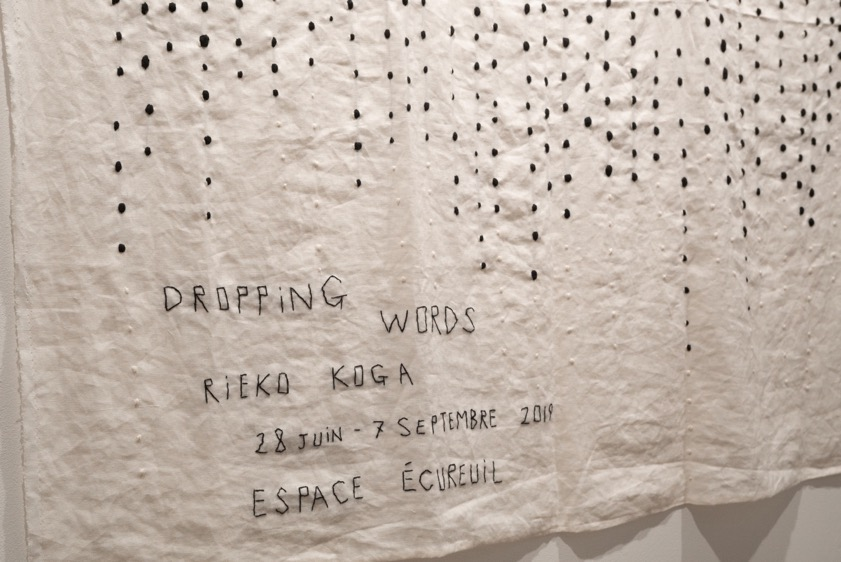 DROPPiNG
WORDS
RiEKO KOGA
28 JUiN - 7 SEPTEMBRE 2019
ESPACE ÉCUREUiL